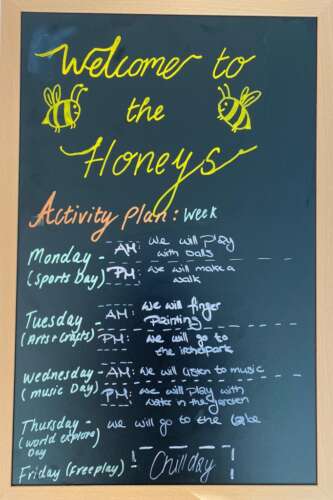 Welcome to
the
Honeys
Activity Plan: Week
Monday - AM: we will play
with balls
(Sports Day) PM: we will make a
walk
Tuesday - AM: we will finger
Painting
(Arts + Crafts) PM: we will go to
the
Wednesday - AM: we will listen to music
(music Day) PM: we will play with
water in the garden
Thursday - we will go to the
(world explore)
Day
Friday (Freeplay) - Chill day